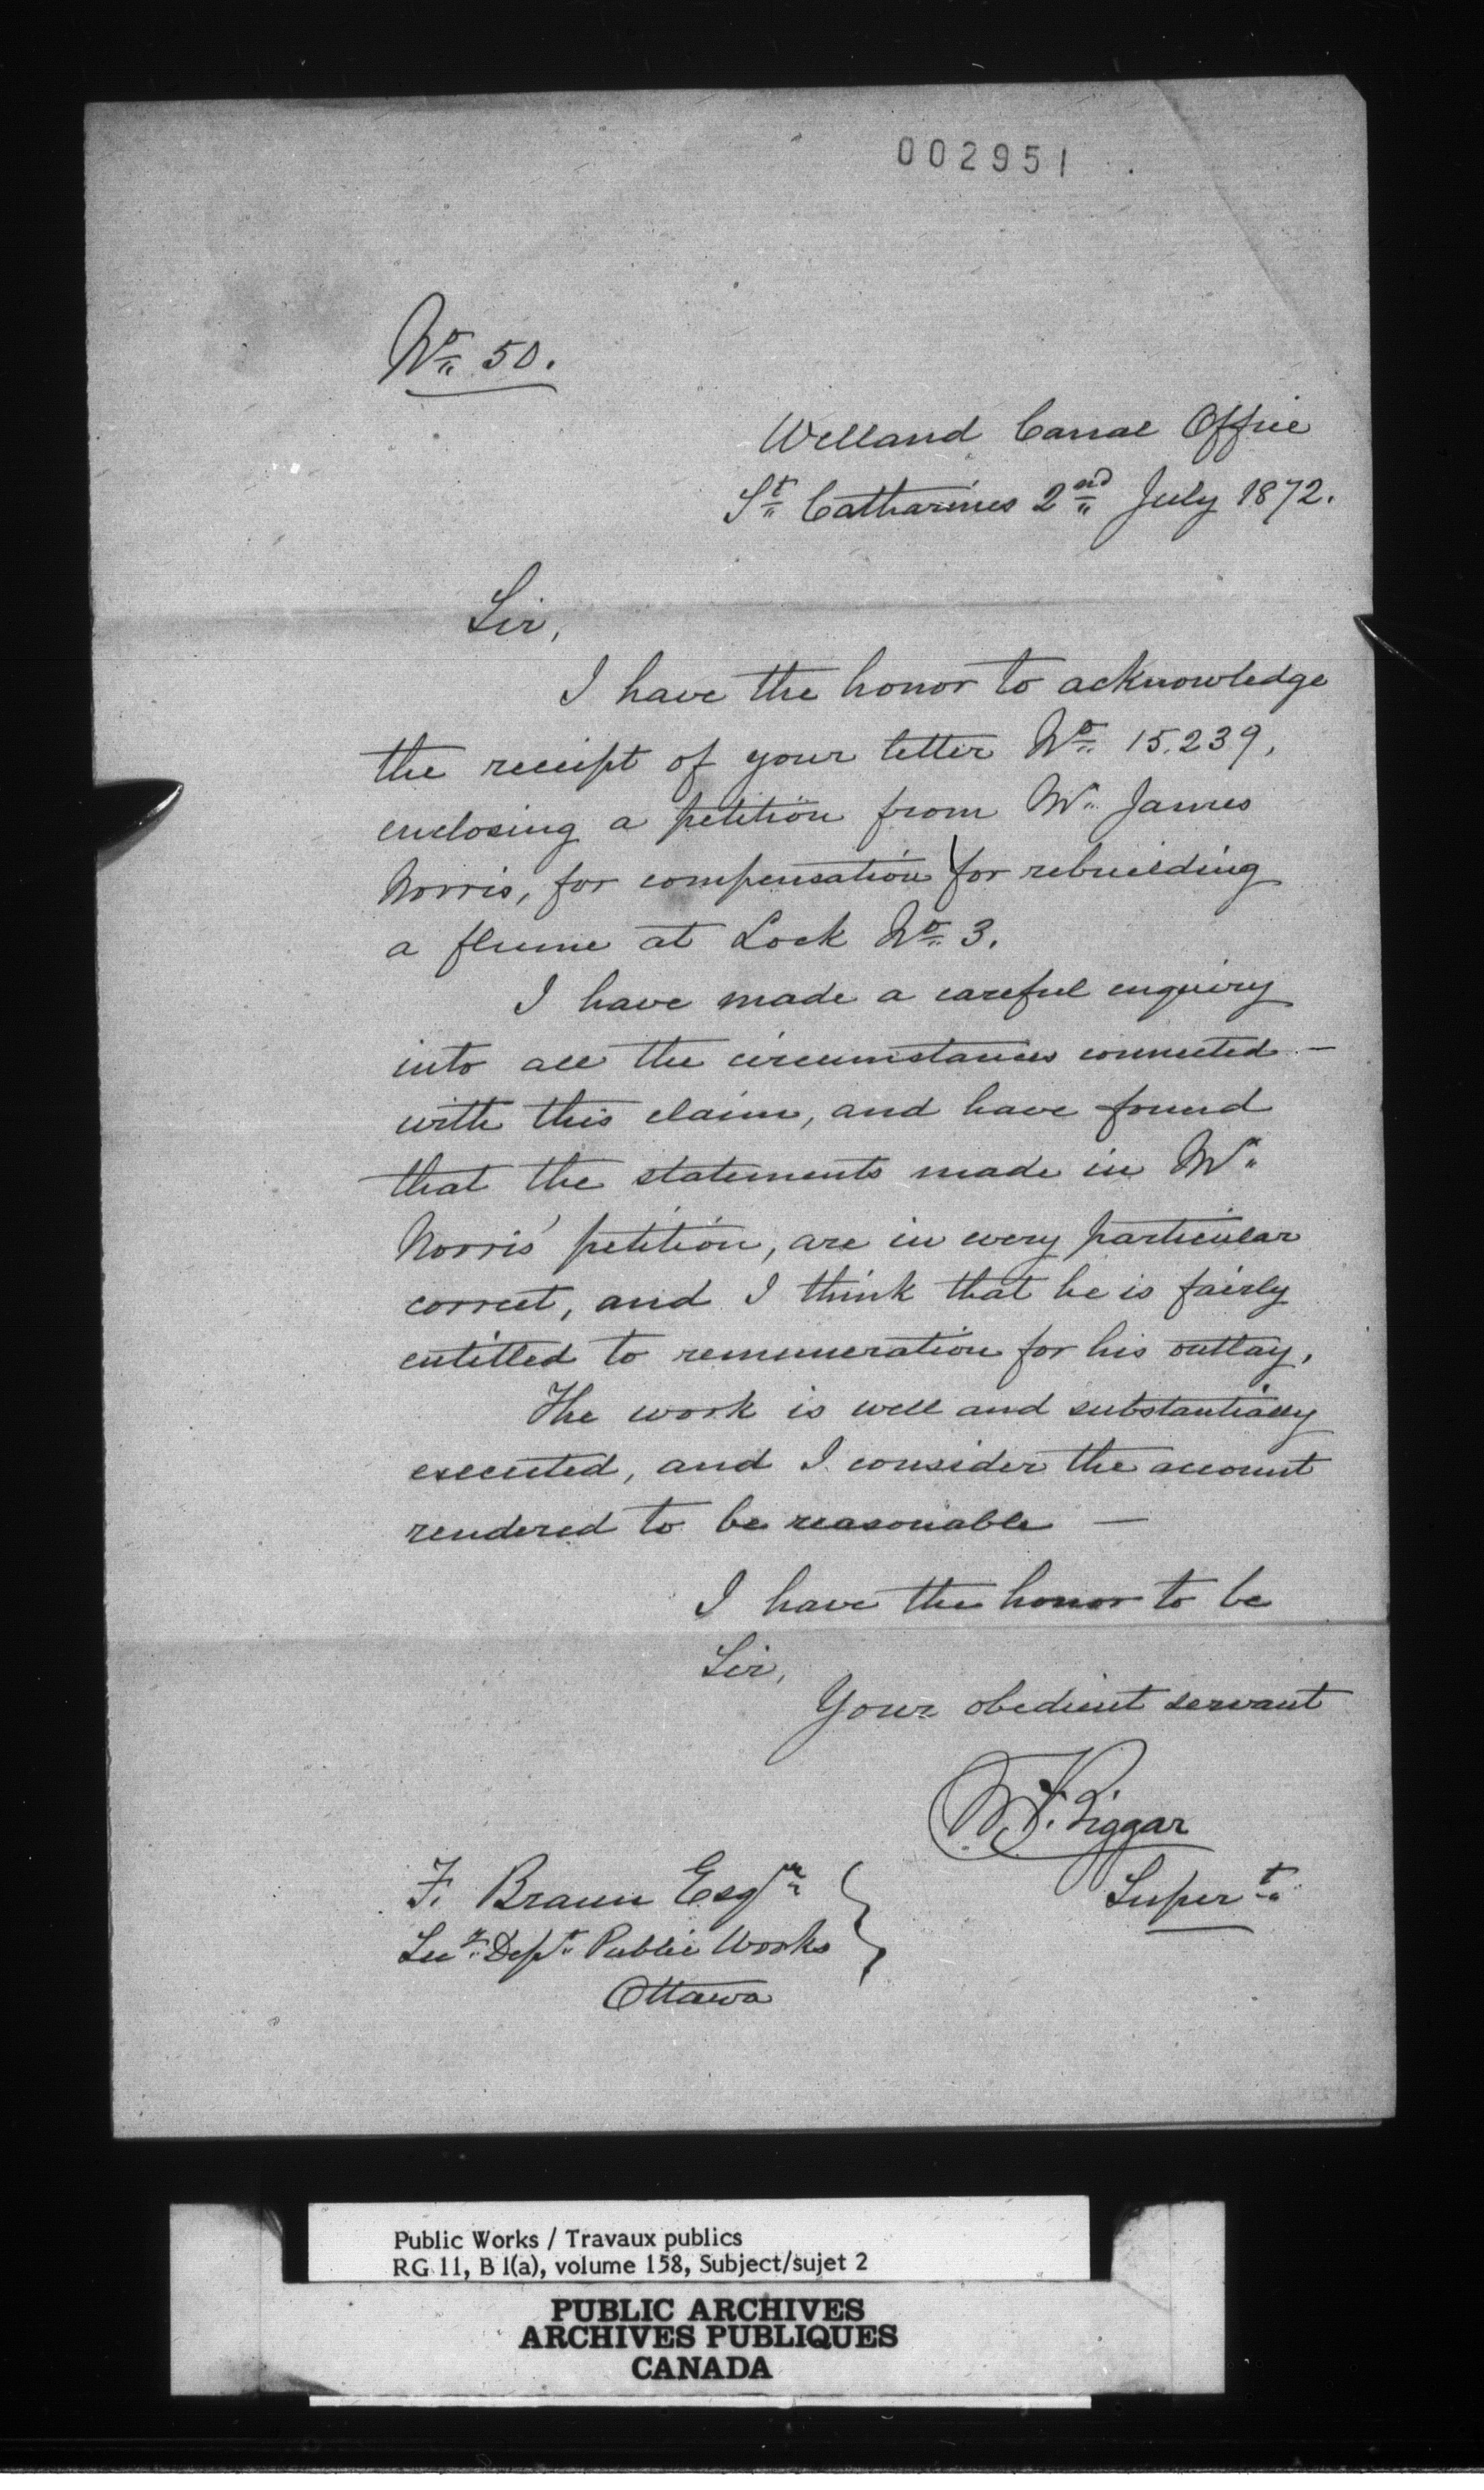 002951
No 50.
Welland Canal Office
St Catharines 2nd July 1872.
Sir,
I have the honor to acknowledge
the receipt of your letter No 15.239,
enclosing a petition from Mr James
Norris, for compensation for rebuilding
a flume at Lock No 3.
I have made a careful enquiry
into all the circumstances connected -
with this claim, and have found
that the statements made in Mr
Norris' petition, are in every particular
correct, and I think that he is fairly
entitled to remuneration for his outlay,
The work is well and substantially
executed, and I consider the account
rendered to be reasonable —
I have the honor to be
Sir,
Your obedient servant
F. Biggar
Supert
F. Braun Esqr
Secy Dept Public Works
Ottawa
Public Works / Travaux publics
RG 11, B 1(a), volume 158, Subject/sujet 2
PUBLIC ARCHIVES
ARCHIVES PUBLIQUES
CANADA